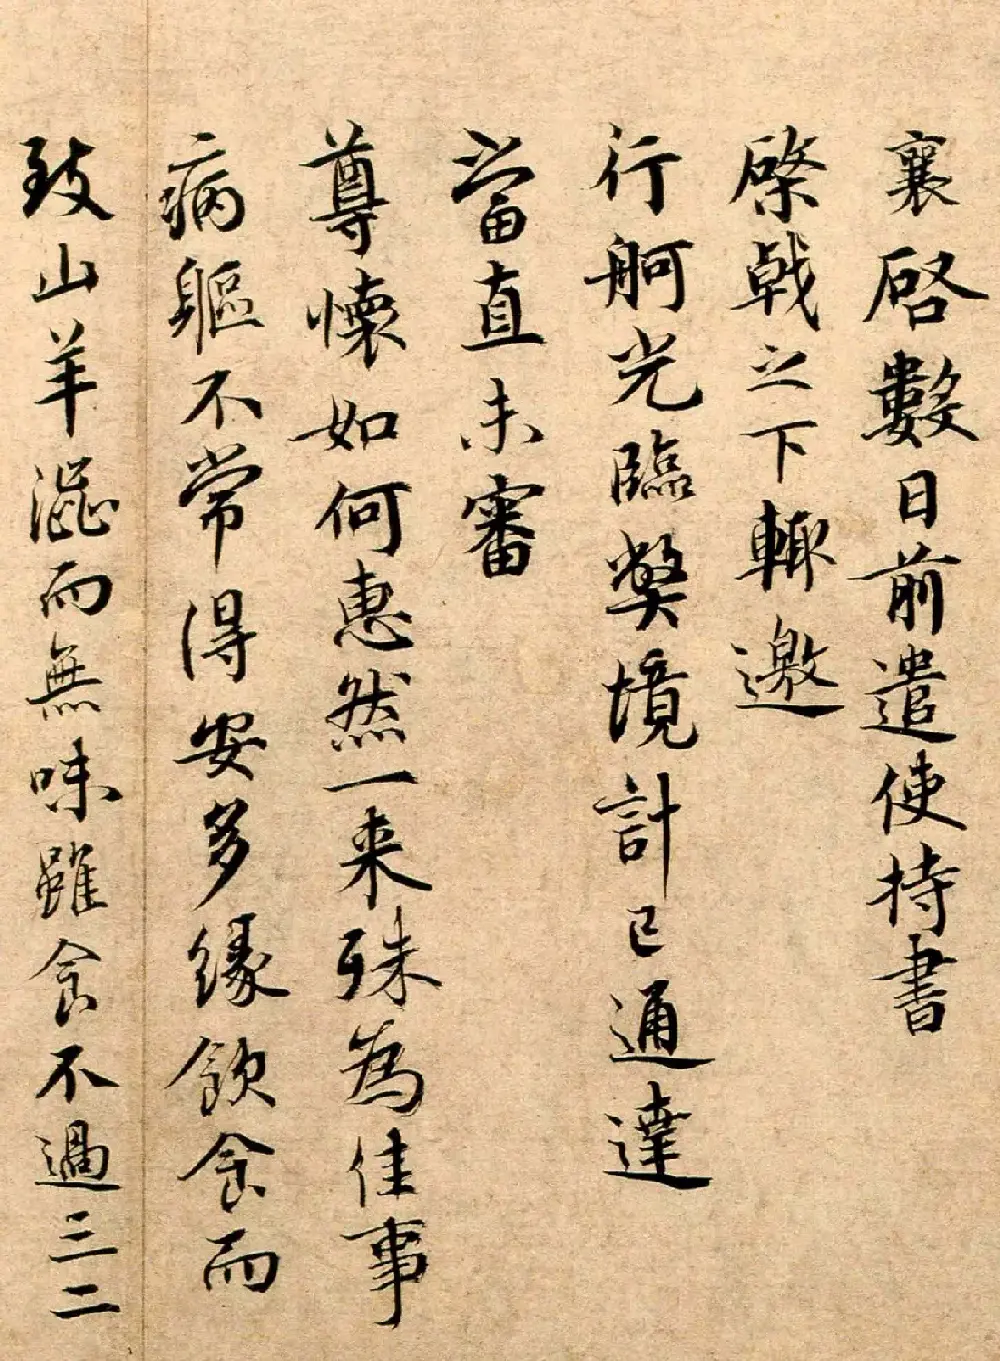 襄啓數日前遣使持書
棨戟之下輙邀
行舸光臨弊境計已通達
當直未審
尊懷如何惠然一来殊為佳事
病軀不常得安多緣飲食而
致山羊澀而無味雖食不過三二